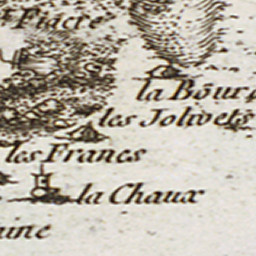 Fiacre
la Bour
les Jolivets
les Francs
la Chaux
aine